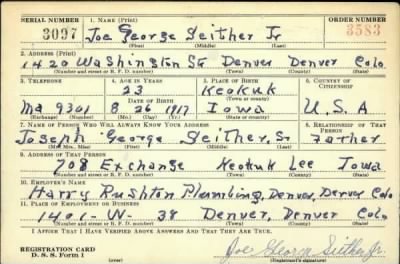 SERIAL NUMBER 1. NAME (Print) ORDER NUMBER
3097 Joe George Seither Jr 3583
(First) (Middle) (Last)
2. ADDRESS (Print)
1420 Washington St Denver Denver Colo
(Number and street or R. F. D. number) (Town) (County) (State)
3. TELEPHONE 4. AGE IN YEARS 5. PLACE OF BIRTH 6. COUNTRY OF CITIZENSHIP
23 Keokuk
DATE OF BIRTH (Town or county)
Ma 9301 8 26 1917 Iowa U.S.A
(Exchange) (Number) (Mo.) (Day) (Yr.) (State or country)
7. NAME OF PERSON WHO WILL ALWAYS KNOW YOUR ADDRESS 8. RELATIONSHIP OF THAT PERSON
Joseph George Seither, Sr Father
(Mr., Mrs., Miss) (First) (Middle) (Last)
9. ADDRESS OF THAT PERSON
708 Exchange Keokuk Lee Iowa
(Number and street or R. F. D. number) (Town) (County) (State)
10. EMPLOYER'S NAME
Harry Rushton Plumbing, Denver, Denver Colo
11. PLACE OF EMPLOYMENT OR BUSINESS
1401-W- 38 Denver, Denver Colo
(Number and street or R. F. D. number) (Town) (County) (State)
I AFFIRM THAT I HAVE VERIFIED ABOVE ANSWERS AND THAT THEY ARE TRUE.
REGISTRATION CARD
D. S. S. Form 1
Joe George Seither Jr.
(Registrant's signature)